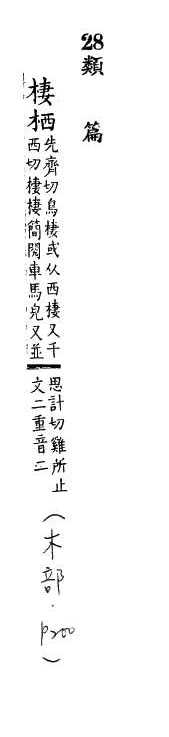 28類篇
棲栖
先齊切鳥棲或从西棲又千
西切棲棲簡閱車馬皃又並
思計切雞所止
文二重音二
(木部.p200)